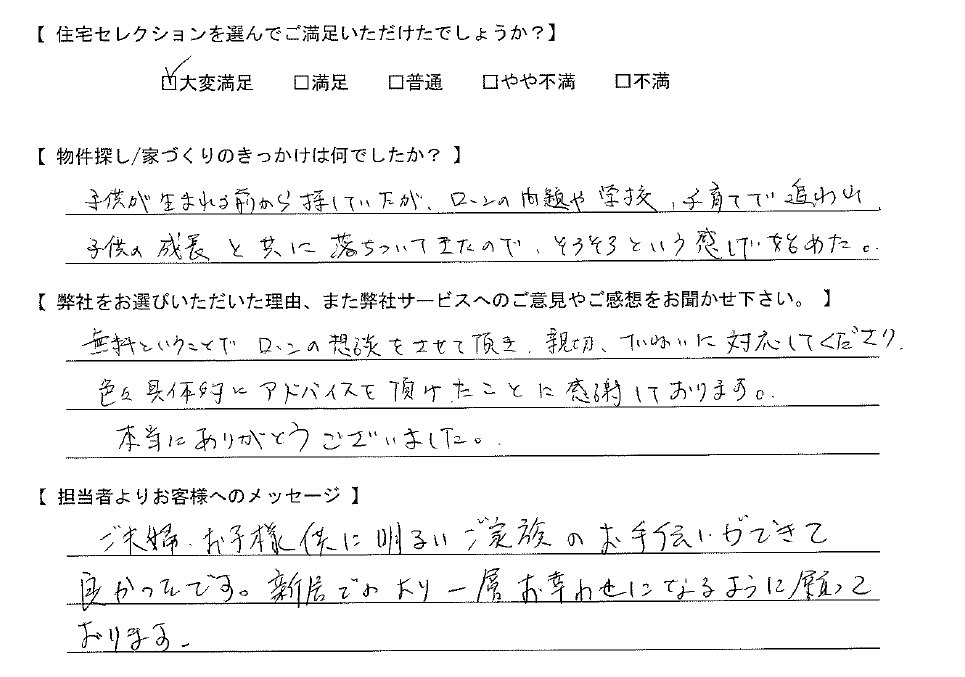 【 住宅セレクションを選んでご満足いただけたでしょうか？】
☑大変満足 □満足 □普通 □やや不満 □不満
【 物件探し/家づくりのきっかけは何でしたか？ 】
子供が生まれる前から探していたが、ローンの問題や学校、子育てで追われ、
子供の成長と共に落ちついてきたので、そろそろという感じで始めた。
【 弊社をお選びいただいた理由、また弊社サービスへのご意見やご感想をお聞かせ下さい。 】
無料ということでローンの想談をさせて頂き、親切、ていねいに対応してくださり、
色々具体的にアドバイスを頂けたことに感謝しております。
本当にありがとうございました。
【 担当者よりお客様へのメッセージ 】
ご夫婦、お子様供に明るいご家族のお手伝いができて
良かったです。新居でのより一層お幸わせになるように願って
おります。